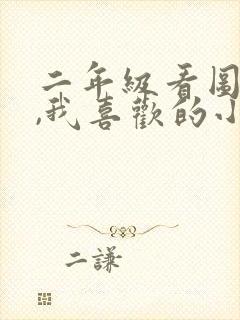 二年级看图
,我喜欢的小
二謙